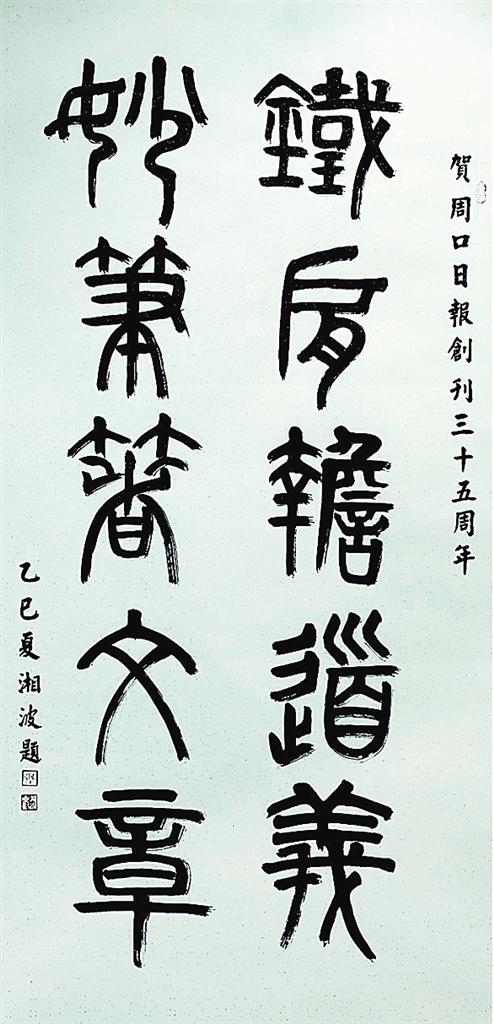 賀周口日報創刊三十五周年
鐵肩擔道義
妙筆著文章
乙巳夏湘波題